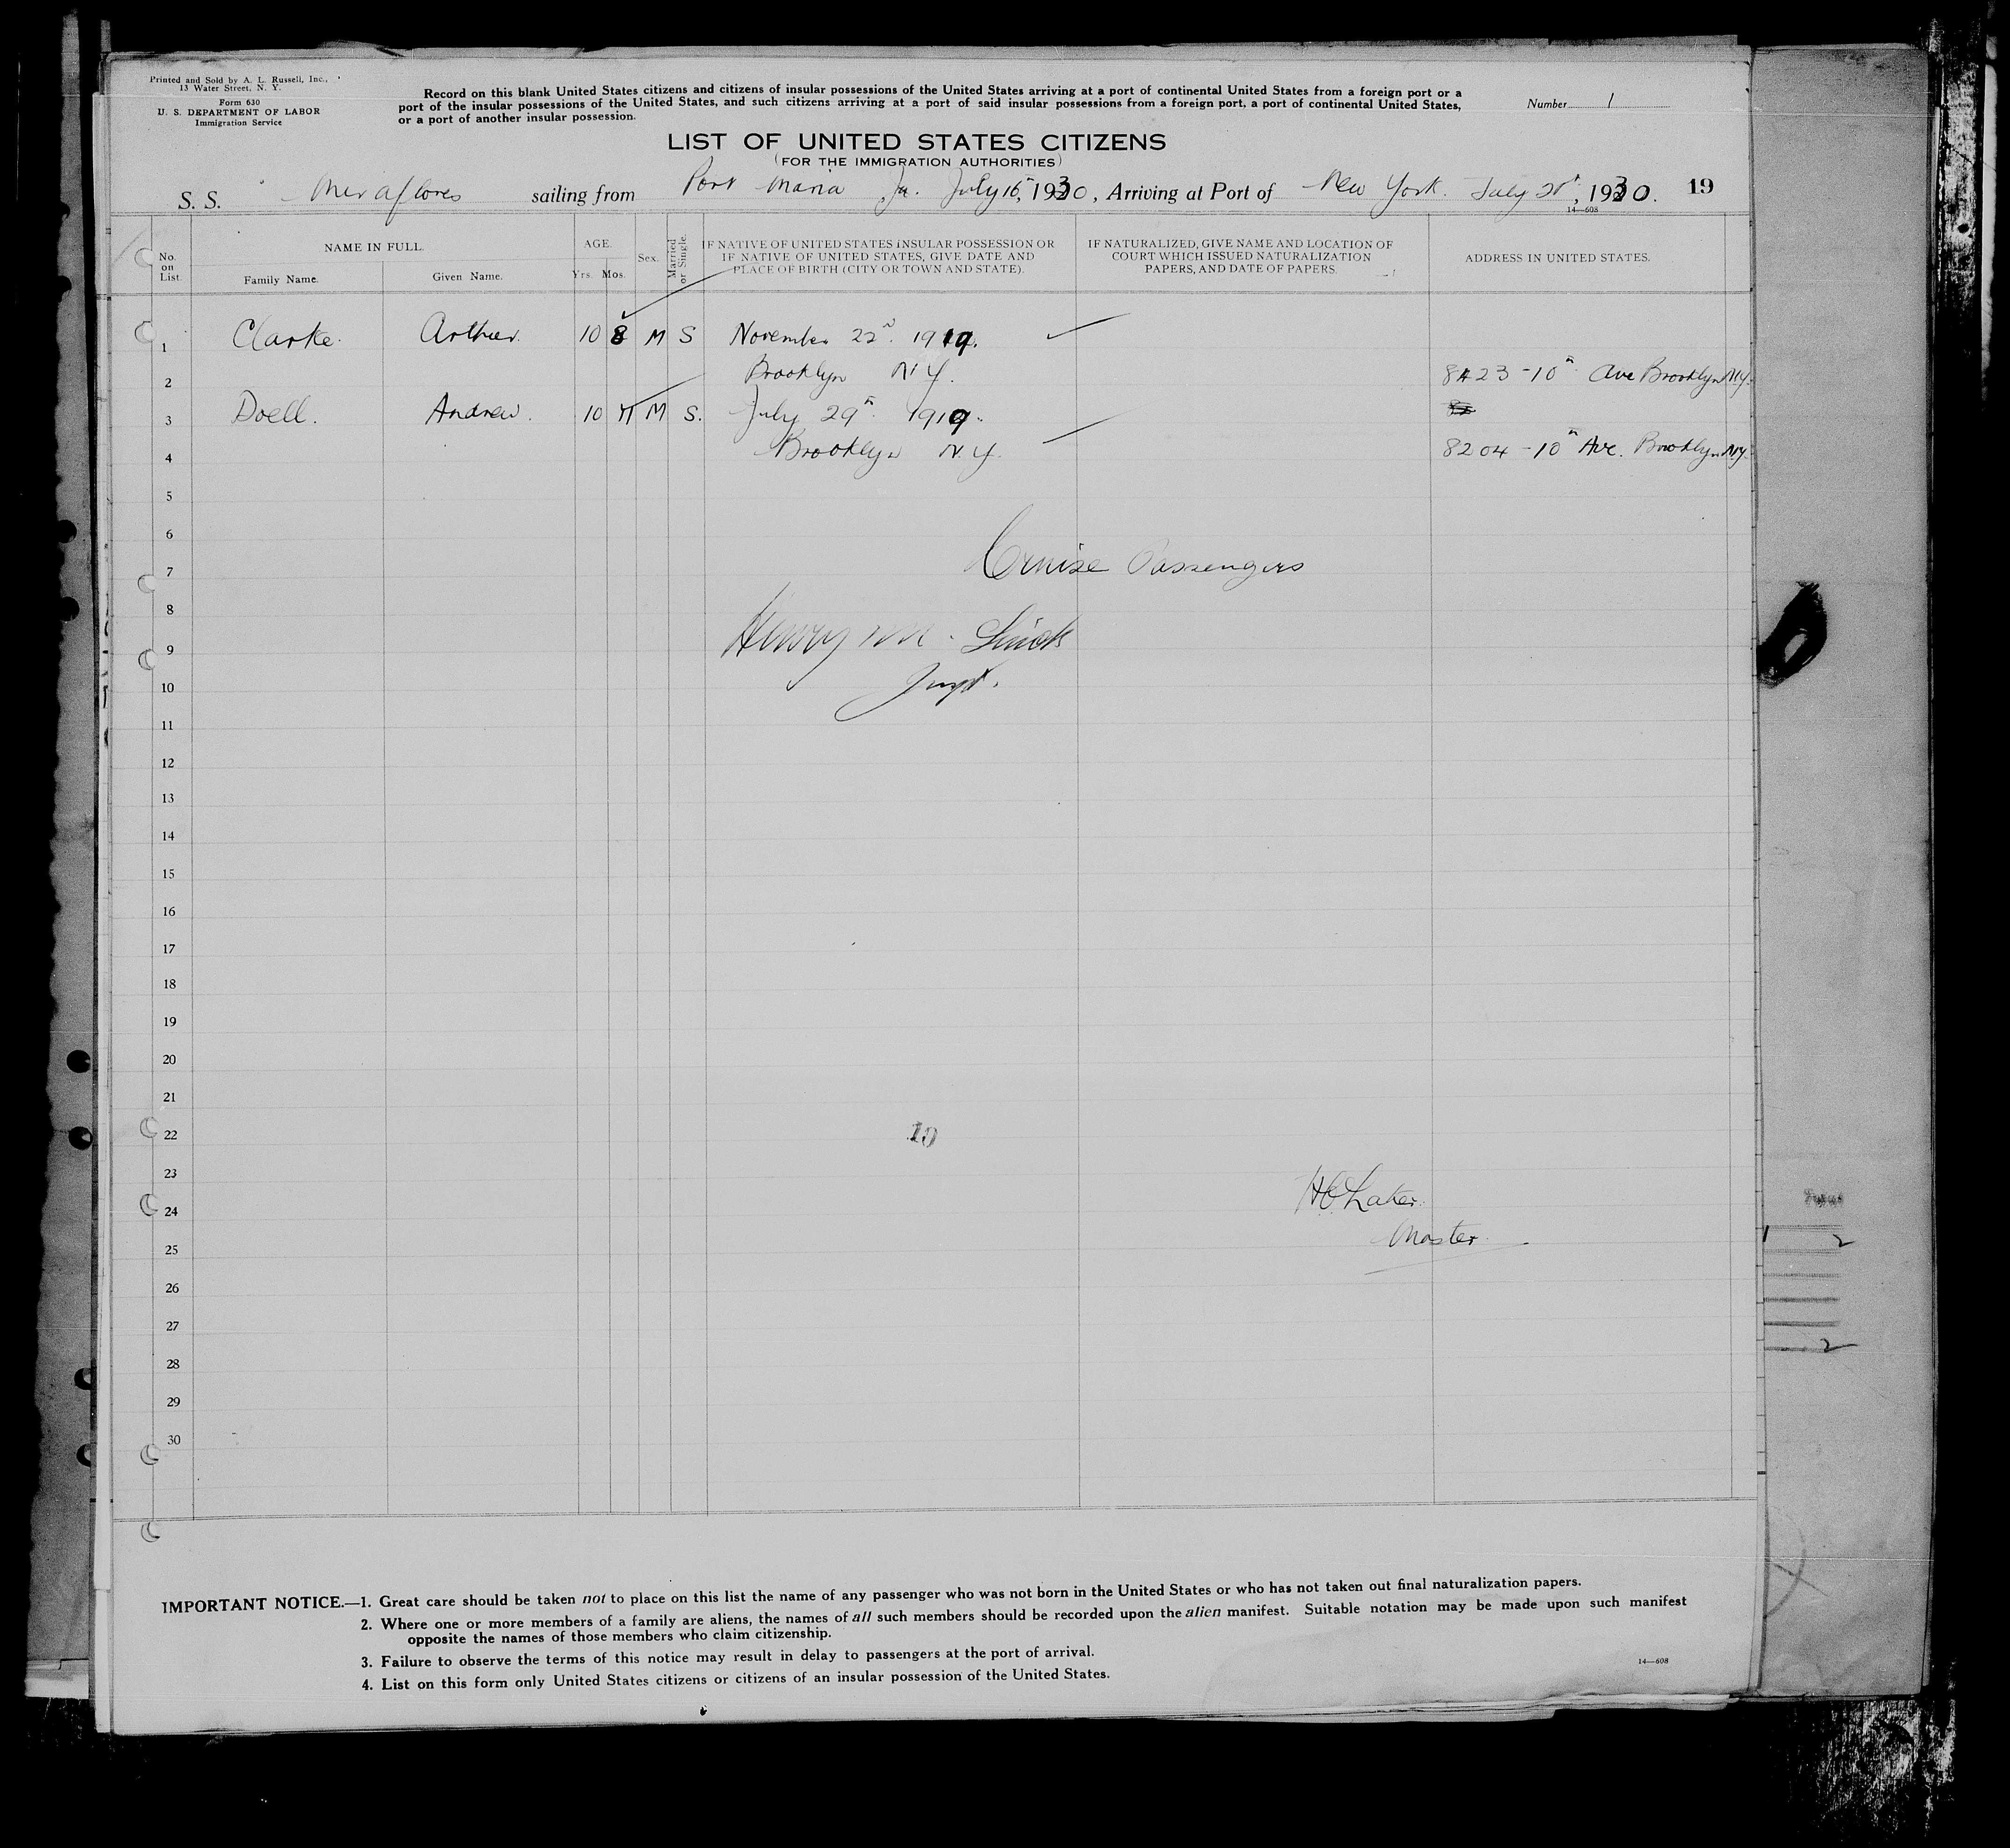 Printed and Sold by A. L. Russell, Inc.,
13 Water Street, N. Y.
Form 630
U. S. DEPARTMENT OF LABOR
Immigration Service
Record on this blank United States citizens and citizens of insular possessions of the United States arriving at a port of continental United States from a foreign port or a
port of the insular possessions of the United States, and such citizens arriving at a port of said insular possessions from a foreign port, a port of continental United States,
or a port of another insular possession.
Number 1
LIST OF UNITED STATES CITIZENS
(FOR THE IMMIGRATION AUTHORITIES)
S. S. Miraflores sailing from Port Maria Ja. July 15, 1930, Arriving at Port of New York. July 21st, 1930. 19
14—608
No. on List.
NAME IN FULL.
Family Name.
Given Name.
AGE.
Yrs. Mos.
Sex.
Married or Single.
IF NATIVE OF UNITED STATES INSULAR POSSESSION OR
IF NATIVE OF UNITED STATES, GIVE DATE AND
PLACE OF BIRTH (CITY OR TOWN AND STATE).
IF NATURALIZED, GIVE NAME AND LOCATION OF
COURT WHICH ISSUED NATURALIZATION
PAPERS, AND DATE OF PAPERS.
ADDRESS IN UNITED STATES.
1 Clarke. Arthur. 10 8 M S November 22nd. 1919.
2 Brooklyn N.Y. 8423 - 10th Ave Brooklyn N.Y.
3 Doell. Andrew. 10 11 M S. July 29th. 1919.
4 Brooklyn N.Y. 8204 - 10th Ave. Brooklyn N.Y.
5
6
7 Cruise Passengers
8
9 Henry M.
10
11
12
13
14
15
16
17
18
19
20
21
22 10
23
24 H C Laker.
25 Master.
26
27
28
29
30
IMPORTANT NOTICE.—1. Great care should be taken not to place on this list the name of any passenger who was not born in the United States or who has not taken out final naturalization papers.
2. Where one or more members of a family are aliens, the names of all such members should be recorded upon the alien manifest. Suitable notation may be made upon such manifest
opposite the names of those members who claim citizenship.
3. Failure to observe the terms of this notice may result in delay to passengers at the port of arrival.
4. List on this form only United States citizens or citizens of an insular possession of the United States.
14—608